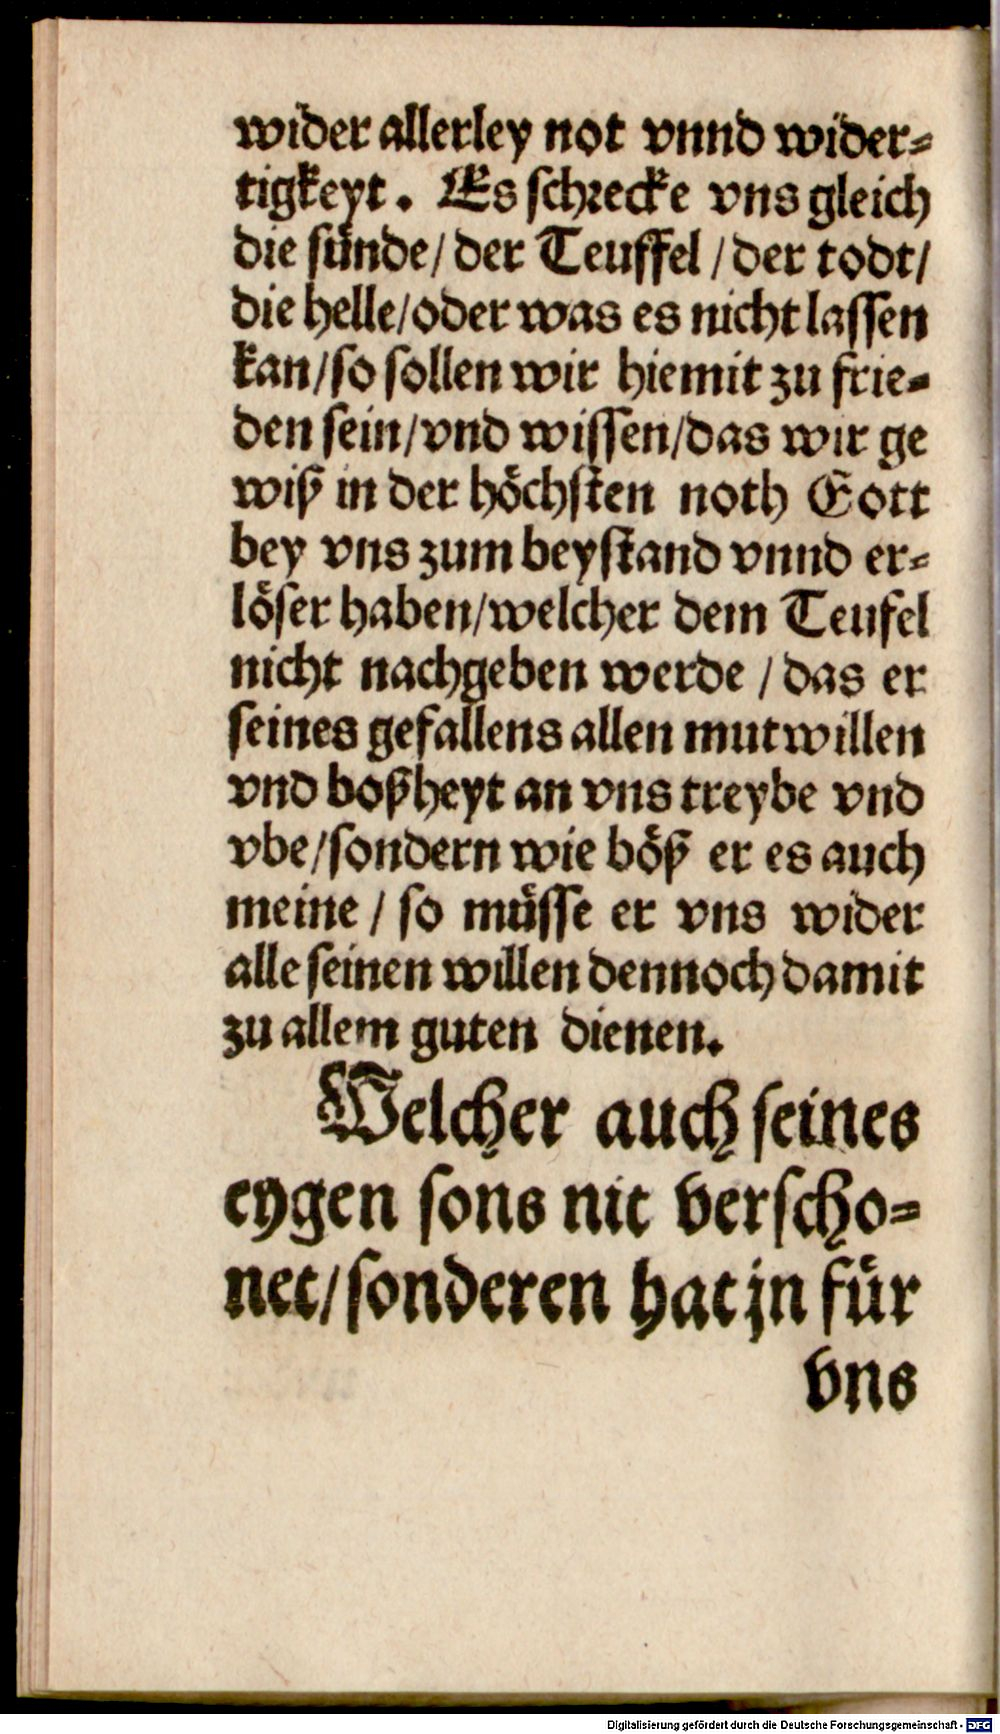 wider allerley not vnnd wider⸗
tigkeyt. Es schrecke vns gleich
die sünde/ der Teuffel / der todt/
die helle/oder was es nicht lassen
kan/so sollen wir hiemit zu frie⸗
den sein/vnd wissen/das wir ge
wiß in der höchsten noth Gott
bey vns zum beystand vnnd er⸗
löser haben/welcher dem Teufel
nicht nachgeben werde / das er
seines gefallens allen mutwillen
vnd boßheyt an vns treybe vnd
vbe/sondern wie böß er es auch
meine / so müsse er vns wider
alle seinen willen dennoch damit
zu allem guten dienen.
Welcher auch seines
eygen sons nit verscho⸗
net/sonderen hat jn für
vns
Digitalisierung gefördert durch die Deutsche Forschungsgemeinschaft - DFG